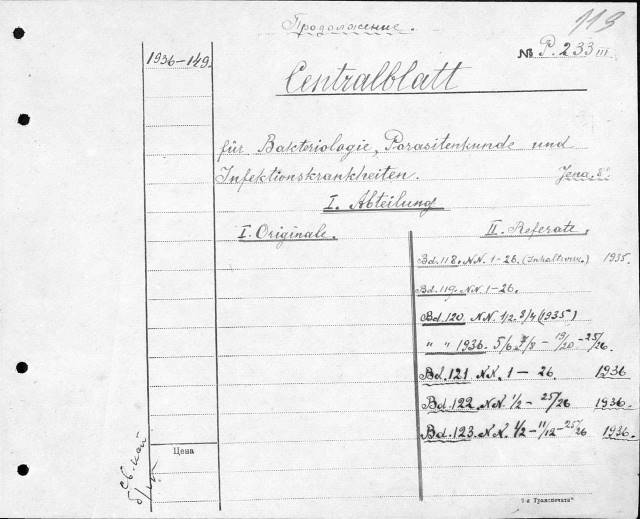 Продолжение.
113
1936-149.
№ P. 233 III
Centralblatt
für Bakteriologie, Parasitenkunde und
Infektionskrankheiten. Jena. 8°
I. Abteilung
I. Originale.
II. Referate.
Bd. 118. NN. 1-26. (Inhaltsverz.) 1935.
Bd. 119. NN. 1-26.
Bd. 120. NN. 1/2. 3/4 (1935)
" " 1936. 5/6. 7/8 - 19/20 - 25/26.
Bd. 121 NN. 1 - 26. 1936
Bd. 122. NN. 1/2 - 25/26 1936.
Bd. 123. NN. 1/2 - 11/12 - 25/26 1936.
Цена